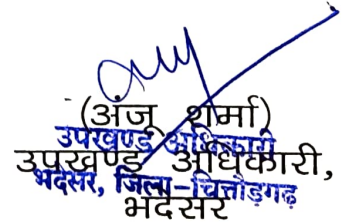 (अंजू शर्मा)
उपखण्ड अधिकारी
उपखण्ड अधिकारी,
भदेसर, जिला-चित्तौड़गढ़
भदेसर